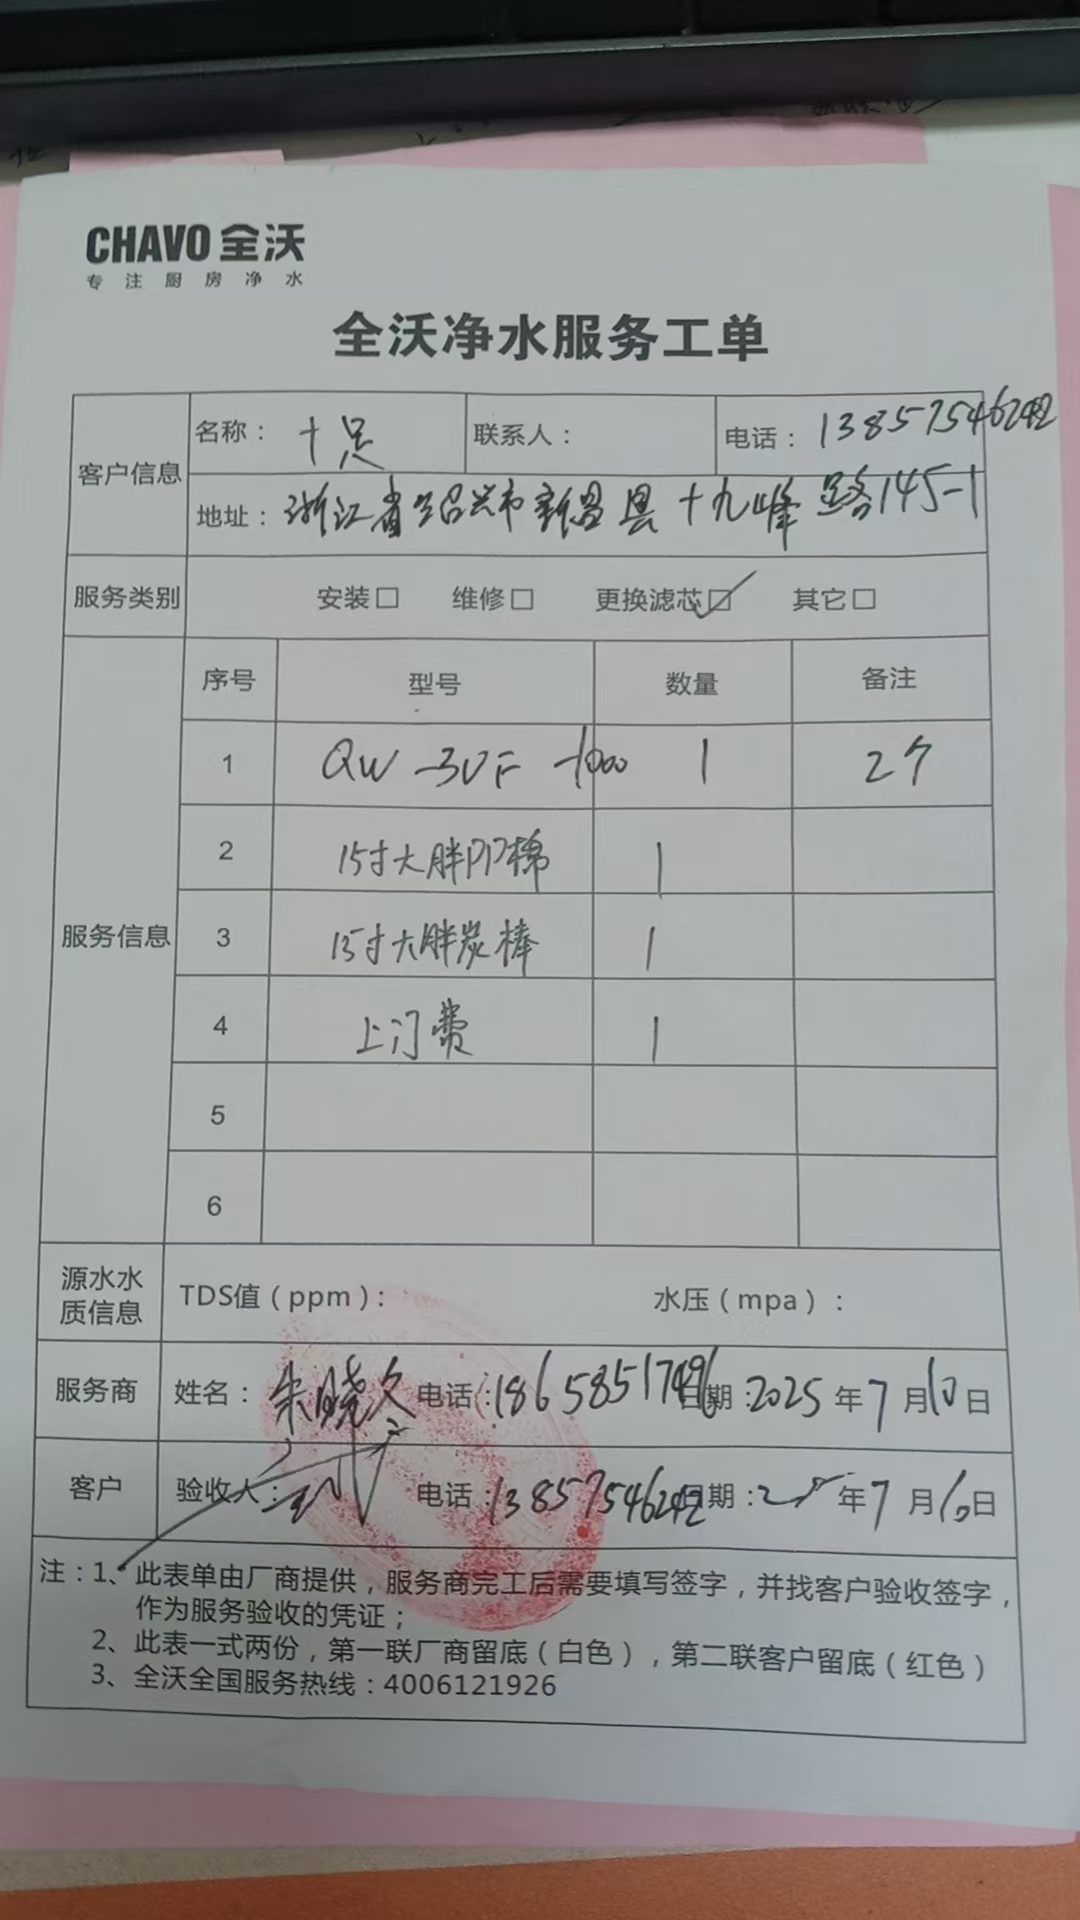 CHAVO 全沃
专注厨房净水
全沃净水服务工单
客户信息
名称：十足 联系人： 电话：13857546242
地址：浙江省绍兴市新昌县十九峰路145-1
服务类别 安装□ 维修□ 更换滤芯☑ 其它□
服务信息
序号 型号 数量 备注
1 QW-3UF-1000 1
2 15寸大胖PP棉 1
3 15寸大胖炭棒 1
4 上门费 1
5
6
源水水质信息 TDS值（ppm）： 水压（mpa）：
服务商 姓名：朱晓久 电话： 日期：2025年7月10日
客户 验收人： 电话：13857546242 日期：25年7月10日
注：1、此表单由厂商提供，服务商完工后需要填写签字，并找客户验收签字，
作为服务验收的凭证；
2、此表一式两份，第一联厂商留底（白色），第二联客户留底（红色）
3、全沃全国服务热线：4006121926